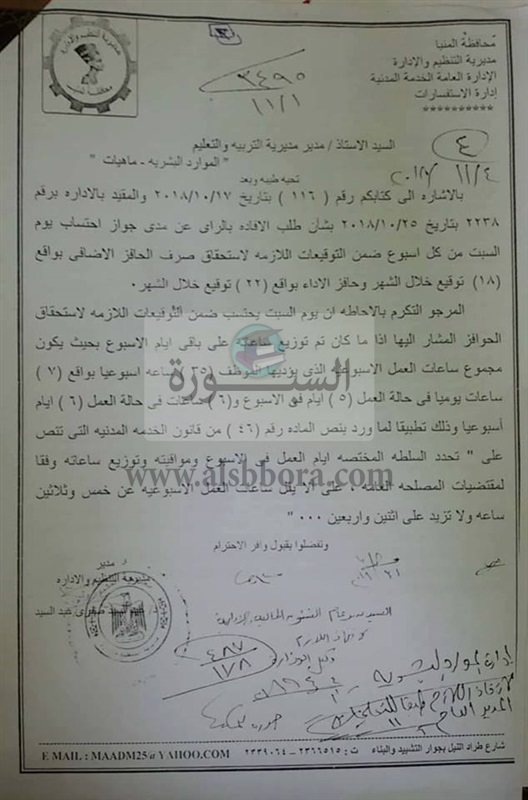 محافظة المنيا
مديرية التنظيم والإدارة
الإدارة العامة الخدمة المدنية
إدارة الاستفسارات
**********
٣٤٩٥
١١/١
٤
١١/٤
السيد الاستاذ / مدير مديرية التربيه والتعليم
" الموارد البشريه - ماهيات "
تحيه طيبه وبعد
بالاشاره الى كتابكم رقم ( ١١٦ ) بتاريخ ٢٠١٨/١٠/١٧ والمقيد بالاداره برقم
٢٢٣٨ بتاريخ ٢٠١٨/١٠/٢٥ بشأن طلب الافاده بالراى عن مدى جواز احتساب يوم
السبت من كل اسبوع ضمن التوقيعات اللازمه لاستحقاق صرف الحافز الاضافى بواقع
(١٨) توقيع خلال الشهر وحافز الاداء بواقع (٢٢) توقيع خلال الشهر .
المرجو التكرم بالاحاطه ان يوم السبت يحتسب ضمن التوقيعات اللازمه لاستحقاق
الحوافز المشار اليها اذا ما كان تم توزيع ساعاته على باقى ايام الاسبوع بحيث يكون
مجموع ساعات العمل الاسبوعيه الذى يؤديها الموظف (٣٥) ساعه اسبوعيا بواقع (٧)
ساعات يوميا فى حالة العمل (٥) ايام فى الاسبوع و(٦) ساعات فى حالة العمل (٦) ايام
أسبوعيا وذلك تطبيقا لما ورد بنص الماده رقم (٤٦) من قانون الخدمه المدنيه التى تنص
على " تحدد السلطه المختصه ايام العمل فى الاسبوع ومواقيته وتوزيع ساعاته وفقا
لمقتضيات المصلحه العامه ، على ألا يقل ساعات العمل الاسبوعيه عن خمس وثلاثين
ساعه ولا تزيد على اثنين واربعين ... "
السبورة
www.alsbbora.com
وتفضلوا بقبول وافر الاحترام
مدير
مديرية التنظيم والاداره
عبد السيد
٤٨٧
١٧٨
شارع طراد النيل بجوار التشييد والبناء ت : ٢٣٦٦٥١٥ - ٢٣٣٩٠٦٤
E MAIL : MAADM25@YAHOO.COM